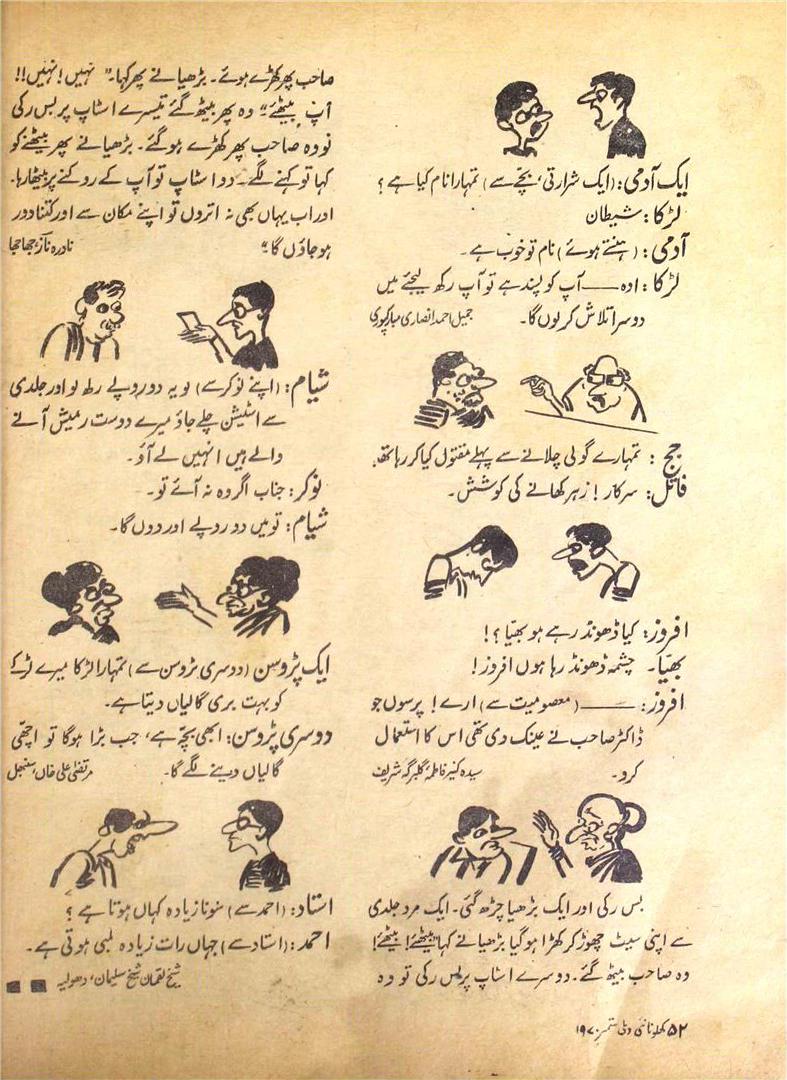 ایک آدمی: (ایک شرارتی، بچّے سے) تمہارا نام کیا ہے؟
لڑکا: شیطان
آدمی: (ہنستے ہوئے) نام تو خوب ہے۔
لڑکا: اوہ ــــ آپ کو پسند ہے تو آپ رکھ لیجئے میں
دوسرا تلاش کر لوں گا۔ جمیل احمد انصاری مبارکپوری
جج: تمہارے گولی چلانے سے پہلے مقتول کیا کر رہا تھا۔
قاتل: سرکار! زہر کھانے کی کوشش۔
افروز: کیا ڈھونڈ رہے ہو بھیّا؟!
بھیّا۔ چشمہ ڈھونڈ رہا ہوں افروز!
افروز: ــــ (معصومیت سے) ارے! پرسوں جو
ڈاکٹر صاحب نے عینک دی تھی اس کا استعمال
کرو۔ سیدہ کنیز فاطمہ، گلبرگہ شریف
بس رکی اور ایک بڑھیا چڑھ گئی۔ ایک مرد جلدی
سے اپنی سیٹ چھوڑ کر کھڑا ہو گیا بڑھیا نے کہا "بیٹھئے! بیٹھئے!
وہ صاحب بیٹھ گئے۔ دوسرے اسٹاپ پر بس رکی تو وہ
صاحب پھر کھڑے ہوئے۔ بڑھیا نے پھر کہا۔ "نہیں! نہیں!!
آپ بیٹھئے" وہ پھر بیٹھ گئے تیسرے اسٹاپ پر بس رکی
تو وہ صاحب پھر کھڑے ہو گئے۔ بڑھیا نے پھر بیٹھنے کو
کہا تو کہنے لگے۔ دو اسٹاپ تو آپ کے روکنے پر بیٹھا رہا۔
اور اب یہاں بھی نہ اتروں تو اپنے مکان سے اور کتنا دور
ہو جاؤں گا" نادرہ ناز، جھاجھا
شیام: (اپنے نوکر سے) لو یہ دو روپے رکھ لو اور جلدی
سے اسٹیشن چلے جاؤ میرے دوست رمیش آنے
والے ہیں انہیں لے آؤ۔
نوکر: جناب اگر وہ نہ آئے تو۔
شیام: تو میں دو روپے اور دوں گا۔
ایک پڑوسن (دوسری پڑوسن سے) تمہارا لڑکا میرے لڑکے
کو بہت بری گالیاں دیتا ہے۔
دوسری پڑوسن: ابھی بچّہ ہے، جب بڑا ہوگا تو اچھّی
گالیاں دینے لگے گا۔ مرتضیٰ علی خاں، سنبھل
استاد: (احمد سے) سونا زیادہ کہاں ہوتا ہے؟
احمد: (استاد سے) جہاں رات زیادہ لمبی ہوتی ہے۔
شیخ لقمان شیخ سلیمان، دھولیہ
۵۲ کھلونا نئی دہلی ستمبر ۱۹۷۰